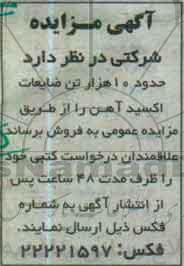 آگهی مـزایده
شرکتی در نظر دارد
حدود ۱۰هزار تن ضایعات
اکسید آهـن را از طـریق
مزایده عمومی به فروش برساند
علاقمندان درخواست کتبی خود
را ظرف مدت ۴۸ ساعت پس
از انتشار آگهی به شمـاره
فکس ذیل ارسال نمـایند.
فکس: ۲۲۲۲۱۵۹۷